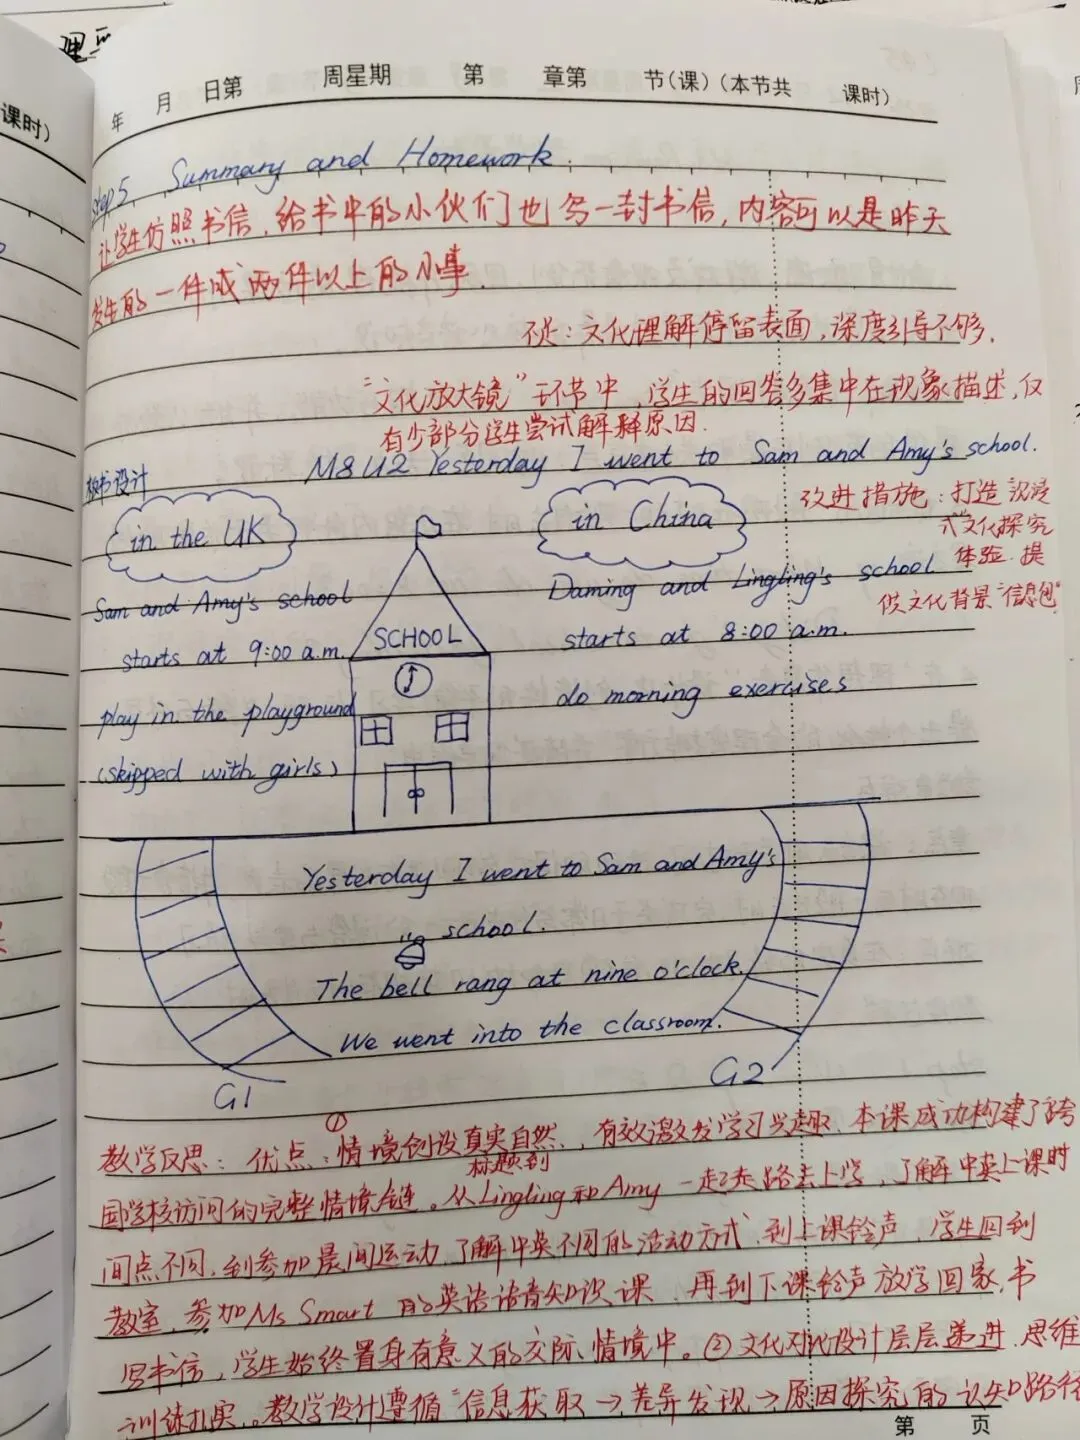 理
课时)
年 月 日第 周星期 第 章第 节(课)(本节共 课时)
Step5 Summary and Homework.
让学生仿照书信,给书中的小伙们也写一封书信,内容可以是昨天
发生的一件或两件以上的小事.
不足:文化理解停留表面,深度引导不够.
"文化放大镜"环节中,学生的回答多集中在现象描述,仅
有少部分学生尝试解释原因.
M8U2 Yesterday I went to Sam and Amy's school.
板书设计
改进措施:打造沉浸
式"文化探究
体验.提
供文化背景"信息包"
in the UK
in China
Sam and Amy's school
starts at 9:00 a.m.
play in the playground
(skipped with girls)
SCHOOL
Daming and Lingling's school
starts at 8:00 a.m.
do morning exercises
Yesterday I went to Sam and Amy's
school.
The bell rang at nine o'clock.
We went into the classroom.
G1
G2
教学反思:优点:①情境创设真实自然,有效激发学习兴趣,本课成功构建了跨
国学校访问的完整情境链。从标题到Lingling和Amy一起走路去上学,了解中英上课时
间点不同,到参加晨间运动,了解中英不同的活动方式,到上课铃声,学生回到
教室,参加Ms Smart的英语语音知识课,再到下课铃声放学回家,书
写书信,学生始终置身有意义的交际情境中。②文化对比设计层层递进,思维
训练扎实。教学设计遵循"信息获取→差异发现→原因探究的认知路径
第 页